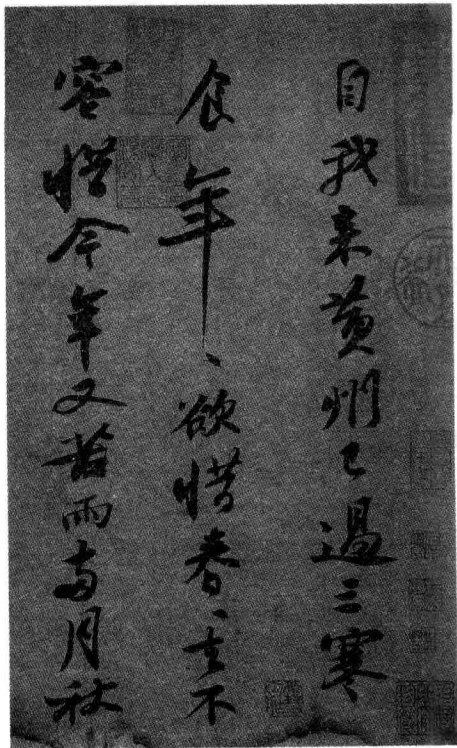 自我來黃州已過三寒
食年〻欲惜春〻去不
容惜今年又苦雨兩月秋